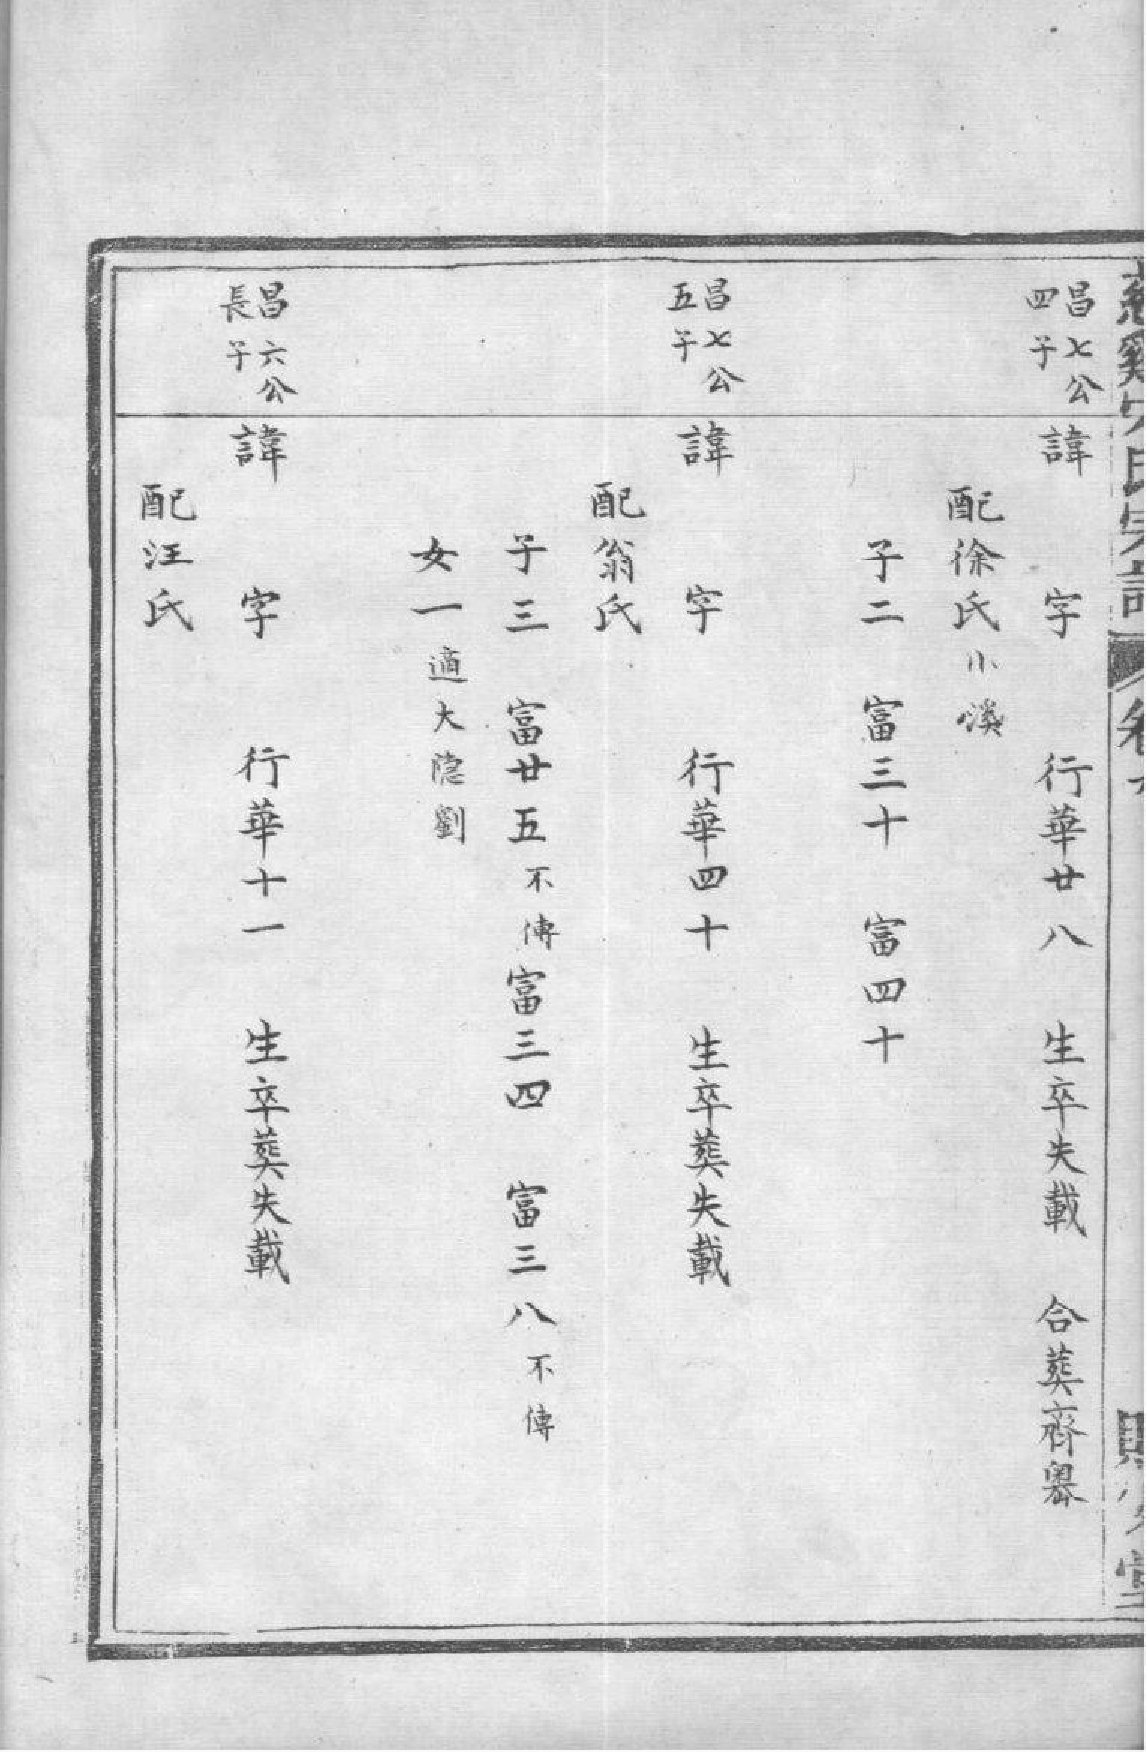 慈谿
宗譜
卷
堂
昌七公
四子
諱 字 行華廿八 生卒失載 合葬齊嶴
配徐氏小溪
子二 富三十 富四十
昌七公
五子
諱 字 行華四十 生卒葬失載
配翁氏
子三 富廿五不傳 富三四 富三八不傳
女一適大隐劉
昌六公
長子
諱 字 行華十一 生卒葬失載
配汪氏